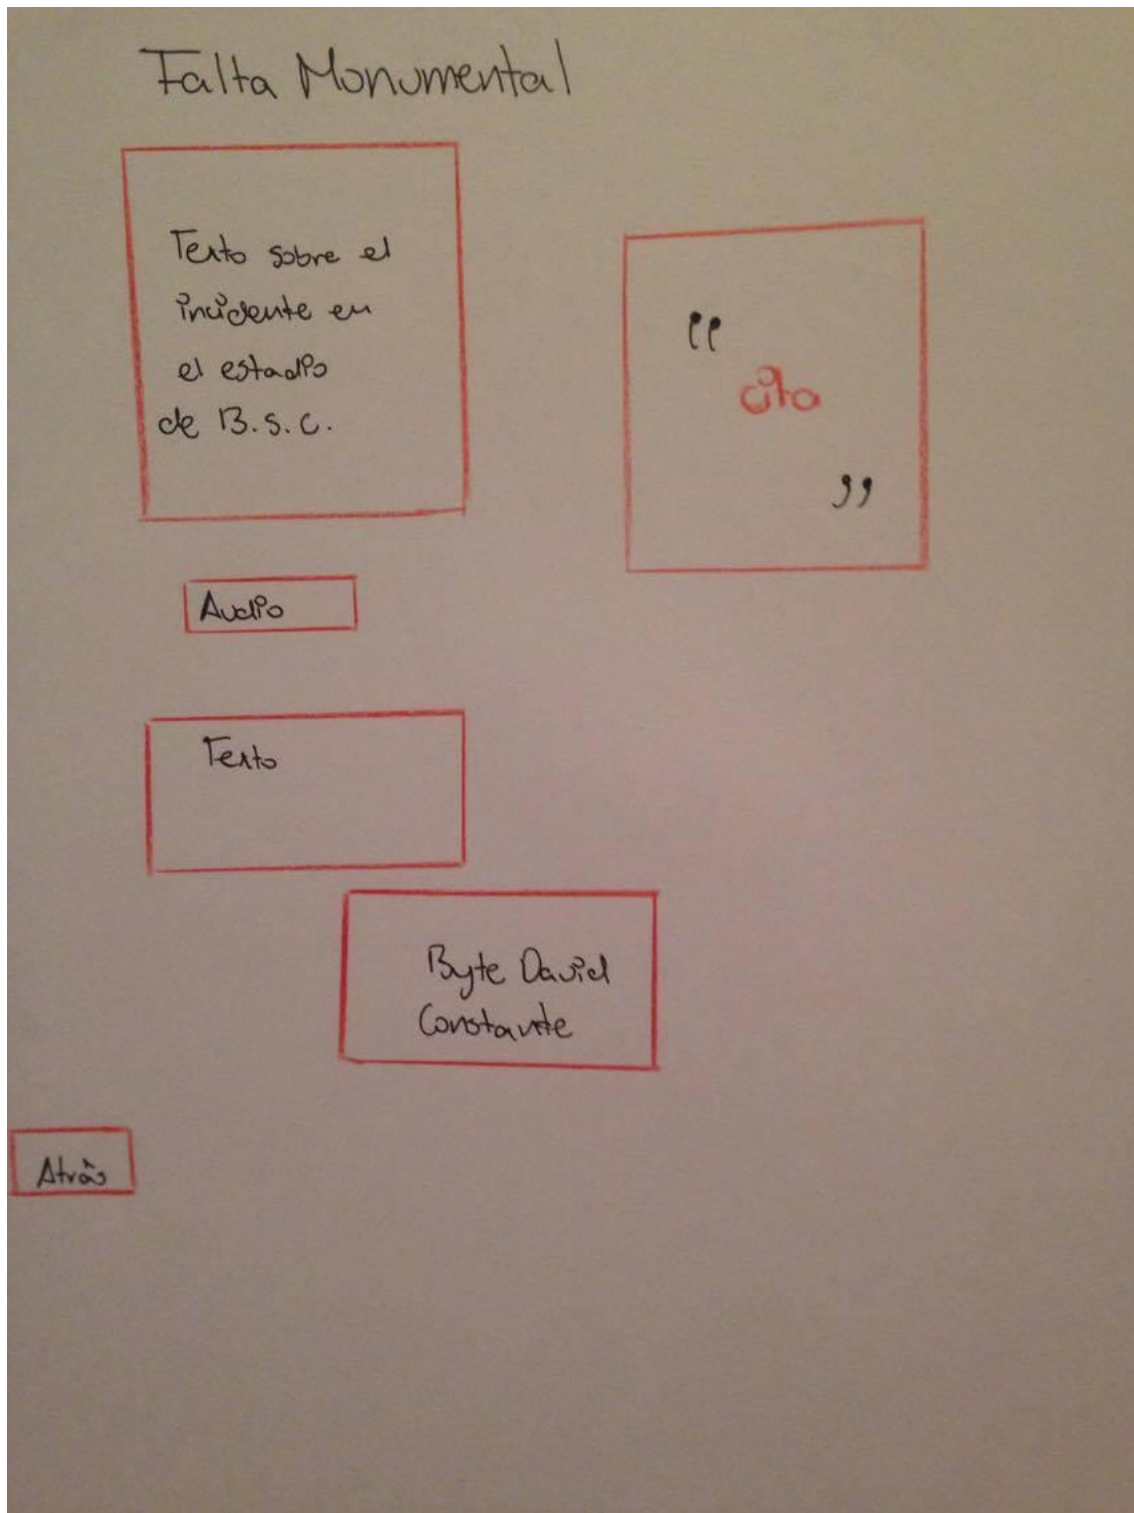 Falta Monumental
Texto sobre el
incidente en
el estadio
de B.S.C.
“
cita
”
Audio
Texto
Byte David
Constante
Atrás